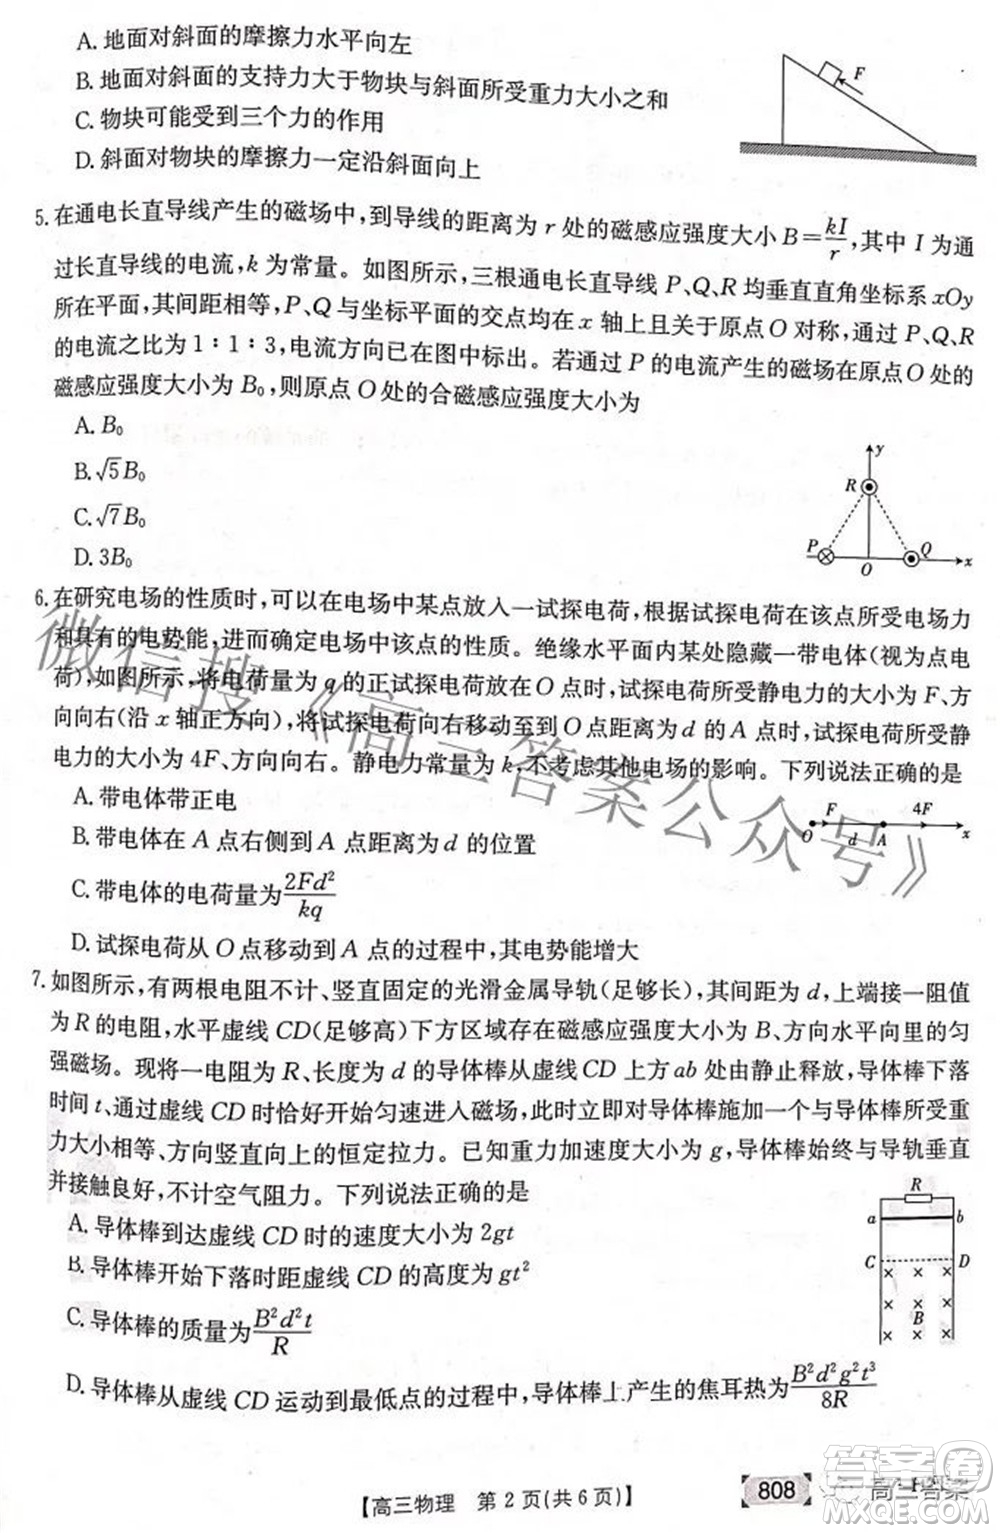 A. 地面对斜面的摩擦力水平向左
B. 地面对斜面的支持力大于物块与斜面所受重力大小之和
C. 物块可能受到三个力的作用
D. 斜面对物块的摩擦力一定沿斜面向上
F
5. 在通电长直导线产生的磁场中，到导线的距离为 r 处的磁感应强度大小 B=kI/r，其中 I 为通
过长直导线的电流，k 为常量。如图所示，三根通电长直导线 P、Q、R 均垂直直角坐标系 xOy
所在平面，其间距相等，P、Q 与坐标平面的交点均在 x 轴上且关于原点 O 对称，通过 P、Q、R
的电流之比为 1∶1∶3，电流方向已在图中标出。若通过 P 的电流产生的磁场在原点O 处的
磁感应强度大小为 B₀，则原点 O 处的合磁感应强度大小为
A. B₀
B. √5B₀
C. √7B₀
D. 3B₀
y
R
P
Q
O
x
6. 在研究电场的性质时，可以在电场中某点放入一试探电荷，根据试探电荷在该点所受电场力
和具有的电势能，进而确定电场中该点的性质。绝缘水平面内某处隐藏一带电体（视为点电
荷），如图所示，将电荷量为 q 的正试探电荷放在 O 点时，试探电荷所受静电力的大小为 F、方
向向右（沿 x 轴正方向），将试探电荷向右移动至到 O 点距离为 d 的 A 点时，试探电荷所受静
电力的大小为 4F、方向向右。静电力常量为 k，不考虑其他电场的影响。下列说法正确的是
A. 带电体带正电
B. 带电体在 A 点右侧到 A 点距离为 d 的位置
C. 带电体的电荷量为2Fd²/kq
D. 试探电荷从 O 点移动到 A 点的过程中，其电势能增大
F
4F
O
d
A
x
7. 如图所示，有两根电阻不计、竖直固定的光滑金属导轨（足够长），其间距为 d，上端接一阻值
为 R 的电阻，水平虚线 CD（足够高）下方区域存在磁感应强度大小为 B、方向水平向里的匀
强磁场。现将一电阻为 R、长度为 d 的导体棒从虚线 CD 上方 ab 处由静止释放，导体棒下落
时间 t、通过虚线 CD 时恰好开始匀速进入磁场，此时立即对导体棒施加一个与导体棒所受重
力大小相等、方向竖直向上的恒定拉力。已知重力加速度大小为 g，导体棒始终与导轨垂直
并接触良好，不计空气阻力。下列说法正确的是
A. 导体棒到达虚线 CD 时的速度大小为 2gt
B. 导体棒开始下落时距虚线 CD 的高度为 gt²
C. 导体棒的质量为B²d²t/R
D. 导体棒从虚线 CD 运动到最低点的过程中，导体棒上产生的焦耳热为B²d²g²t³/8R
R
a
b
C
D
B
【高三物理 第 2 页（共 6 页）】
808
高三答案
答案圈
微信搜《高三答案公众号》